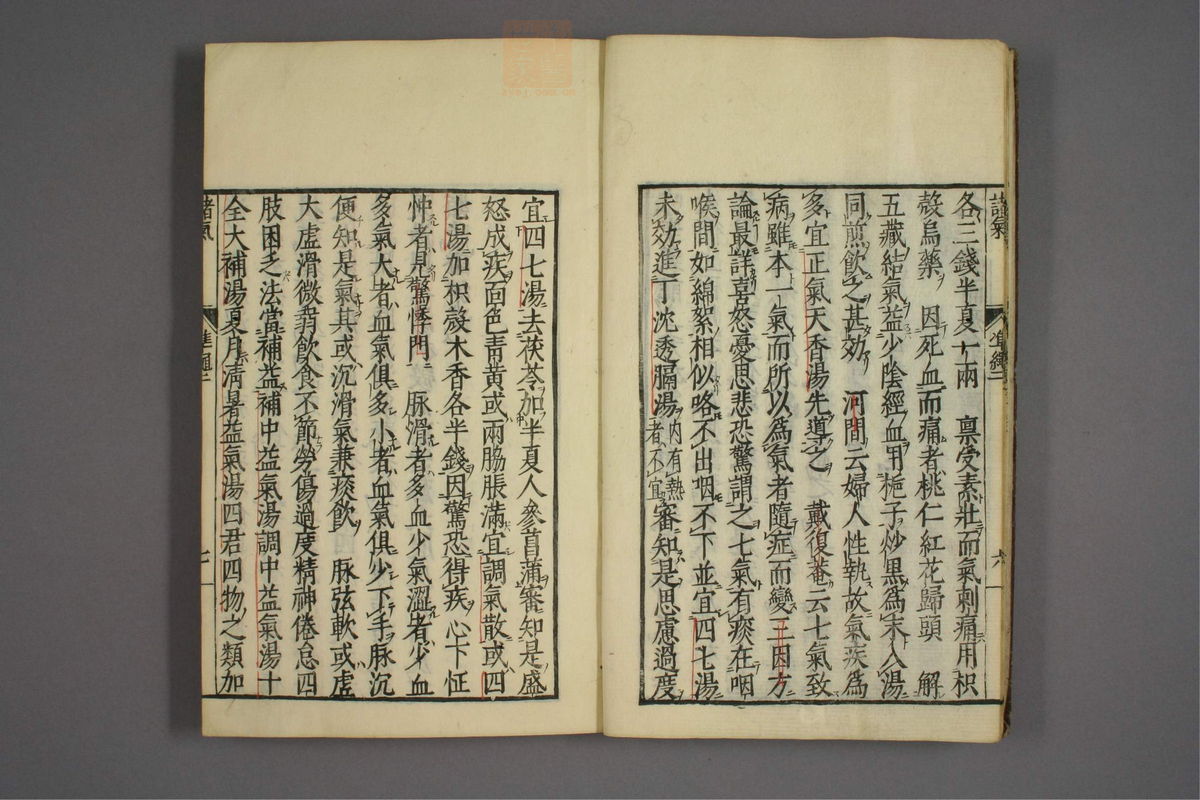 各三錢半夏十兩　稟受素壯而氣刺痛用枳
殼烏藥　因死血而痛者桃仁紅花歸頭　解
五藏結氣益少陰經血用梔子炒黑爲末入湯
同煎飲之甚効　河間云婦人性執故氣疾爲
多宜正氣天香湯先導之　戴復菴云七氣致
病雖本一氣而所以爲氣者隨症而變三因方
論最詳喜怒憂思悲恐驚謂之七氣有痰在咽
喉間如綿絮相似咯不出咽不下並宜四七湯
未効進丁沈透膈湯內有熱者不宜審知是思慮過度
宜四七湯去茯苓加半夏人參菖蒲審知是盛
怒成疾面色青黃或兩脇脹滿宜調氣散或四
七湯加枳殼木香各半錢因驚恐得疾心下怔
忡者見驚悸門　脈滑者多血少氣澀者少血
多氣大者血氣俱多小者血氣俱少下手脈沉
便知是氣其或沉滑氣兼痰飲　脈弦軟或虛
大虛滑微弱飲食不節勞傷過度精神倦怠四
肢困乏法當補益補中益氣湯調中益氣湯十
全大補湯夏月清暑益氣湯四君四物之類加
諸氣
準繩二
七